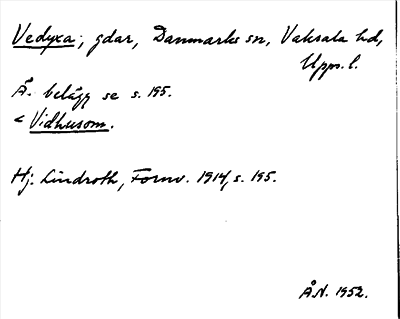 Vedyxa; gdar, Danmarks sn, Vaksala hd,
Upps. l.
Ä. belägg se s. 195.
< Vidhusom.
Hj. Lindroth, Fornv. 1914, s. 195.
ÅN. 1952.